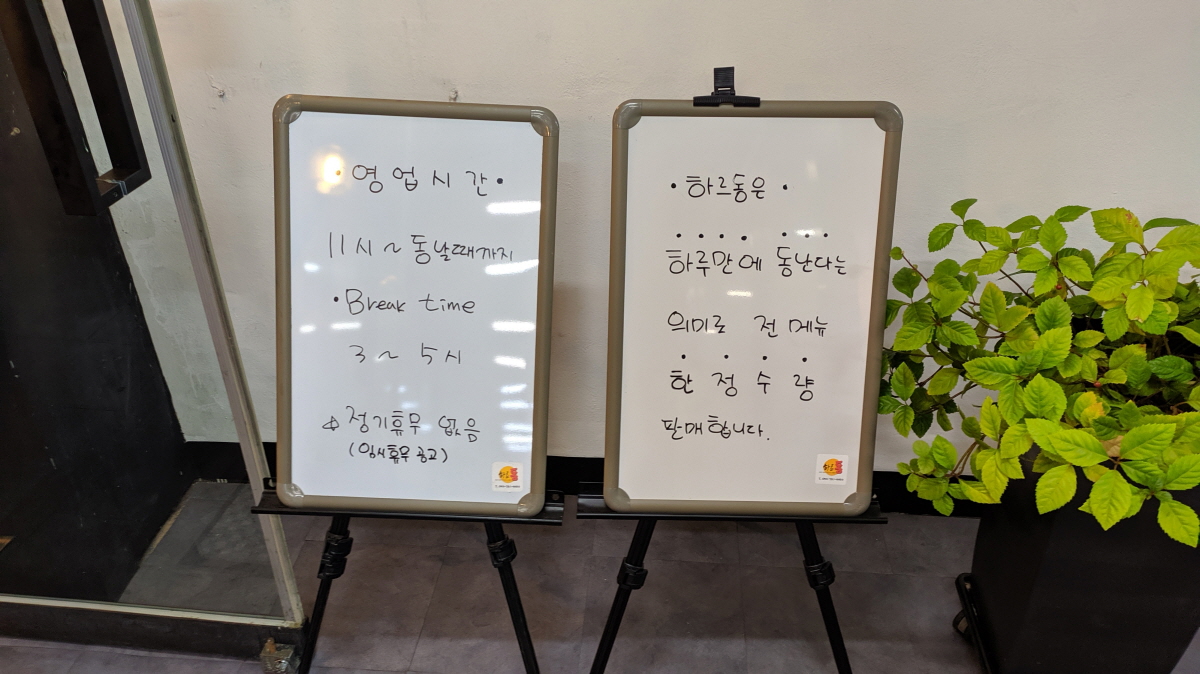 • 영업시간 •
11시 ~ 동날때까지
• Break time
3 ~ 5시
정기휴무 없음
(임시휴무 공고)
• 하르동은 •
하루만에 동난다는
의미로 전 메뉴
한정수량
판매합니다.